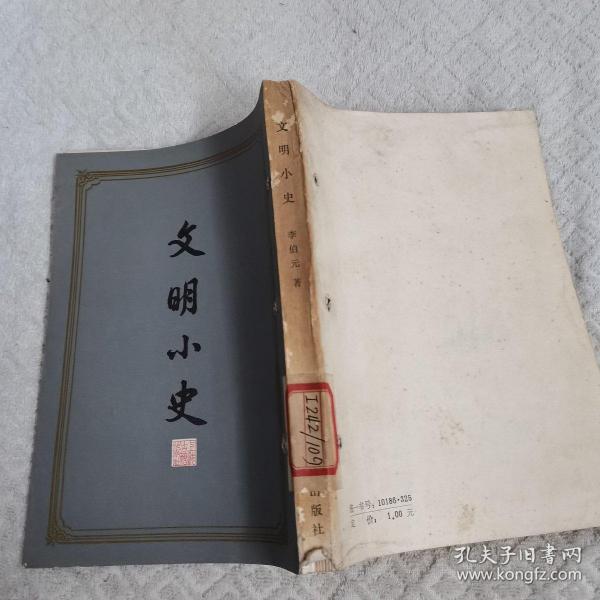 文明小史
文明小史
李伯元 著
I242/109
出版社
统一书号：10186·325
定 价：1.00 元
孔夫子旧书网
www.kongfz.com